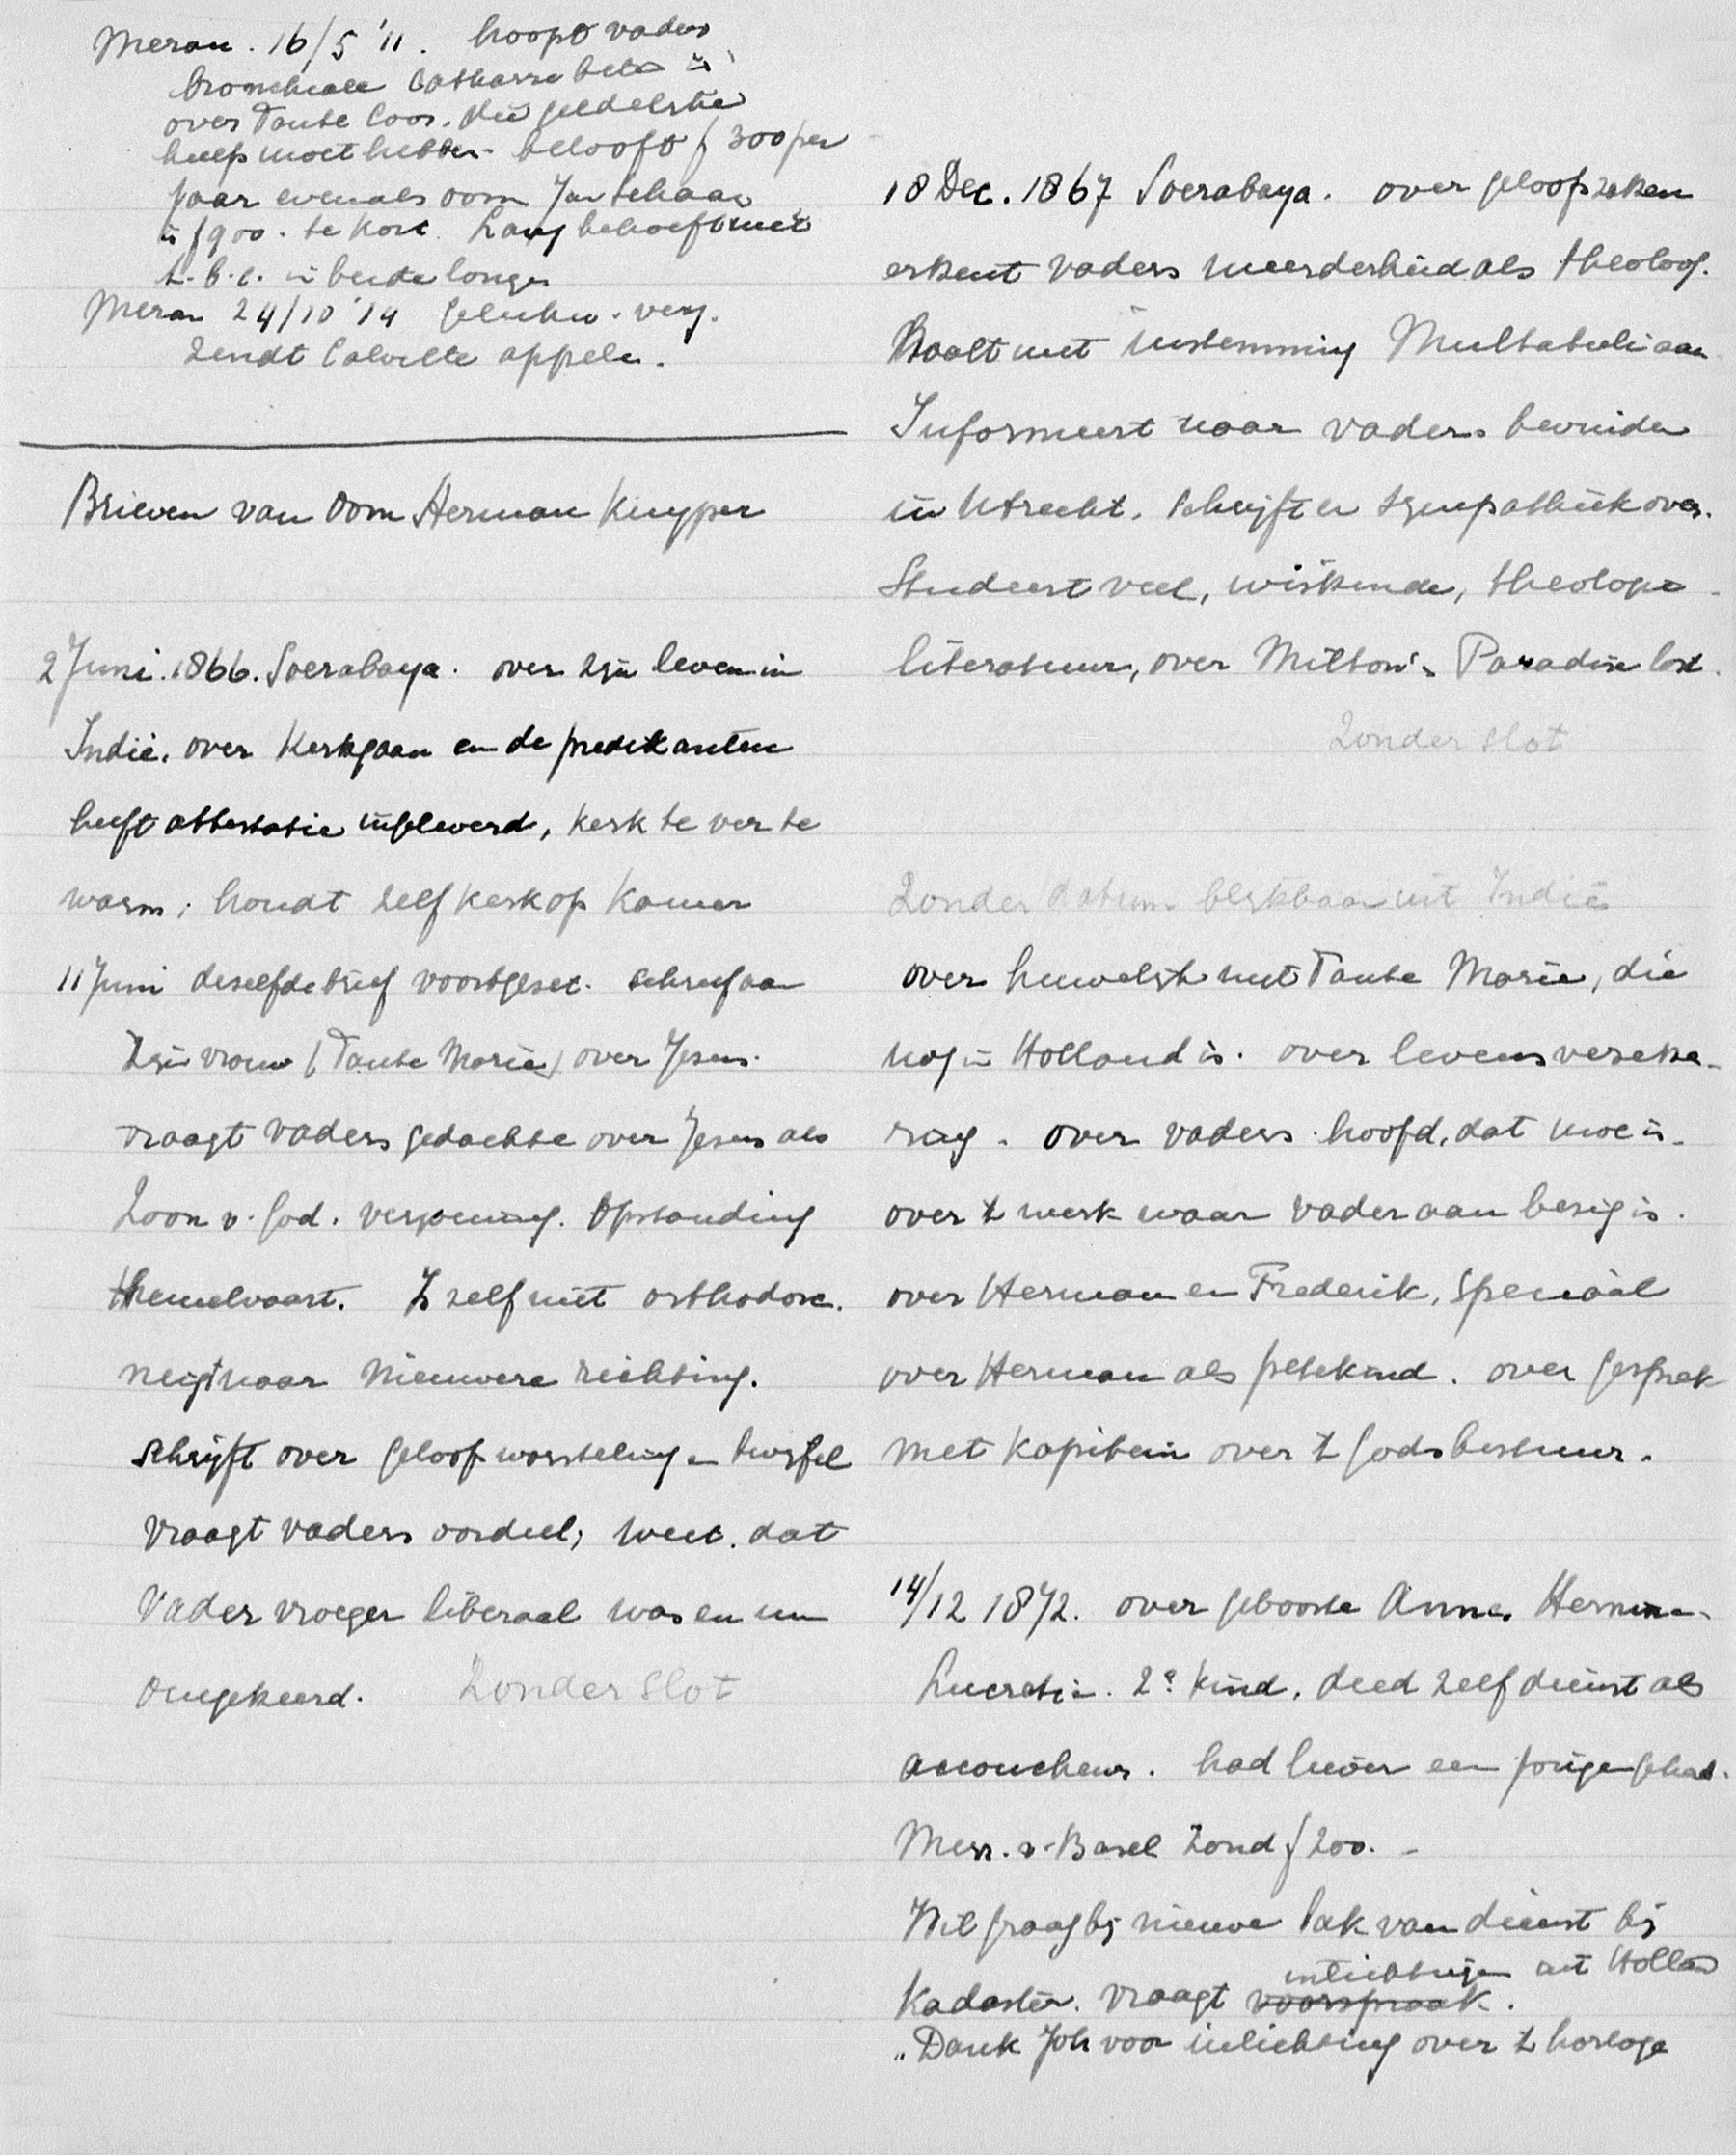 Meran. 16/5 '11. hoopt vaders
bronchiale catharre beter is
over Tante Coos. die geldelijke
hulp moet hebben. belooft f 300 per
jaar evenals oom Jan Schaay
is f 900.- te kort. Lang behoeft niet
t.b.c. in beide longen
Meran 24/10 '14 gelukw. verj.
zendt Calville appels.
Brieven van Oom Herman Kuyper
2 Juni. 1866. Soerabaya. over zijn leven in
Indië. over Kerkgaan en de predikanten
heeft attestatie ingeleverd, kerk te ver te
warm; houdt zelf kerk op Kamer
11 Juni dezelfde brief voortgezet. schreef aan
zijn vrouw (Tante Marie) over Jezus.
vraagt vaders gedachte over Jezus als
Zoon v. God. verzoening. Opstanding
Hemelvaart. Is zelf niet orthodox.
neigt naar Nieuwere richting.
schrijft over geloofworsteling en twijfel
vraagt vaders oordeel; weet. dat
Vader vroeger liberaal was en nu
omgekeerd. Zonder slot
18 Dec. 1867 Soerabaya. over geloofszaken
erkent vaders meerderheid als theoloog.
Haalt met instemming Multatuli aan
Informeert naar vaders bevinden
in Utrecht. schrijft er sympathiek over.
Studeert veel, wiskunde, theologie
literatuur, over Milton's Paradise lost.
Zonder slot
Zonder datum blijkbaar uit Indië
over huwelijk met Tante Marie, die
nog in Holland is. over levensverzeke-
ring. over vaders hoofd, dat moe is.
over 't werk waar vader aan bezig is.
over Herman en Frederik, speciaal
over Herman als petekind. over gesprek
met Kapitein over 't Godsbestuur.
14/12 1872. over geboorte Anna. Hermina-
Lucretia. 2e kind. deed zelf dienst als
accoucheur. had liever een jongen gehad.
Mevr. v. Basel zond f 200.-
Wil graag bij nieuwe tak van dienst bij
inlichtingen uit Holland
Kadaster. vraagt voorspraak.
"Dank Joh voor inlichting over 't horloge